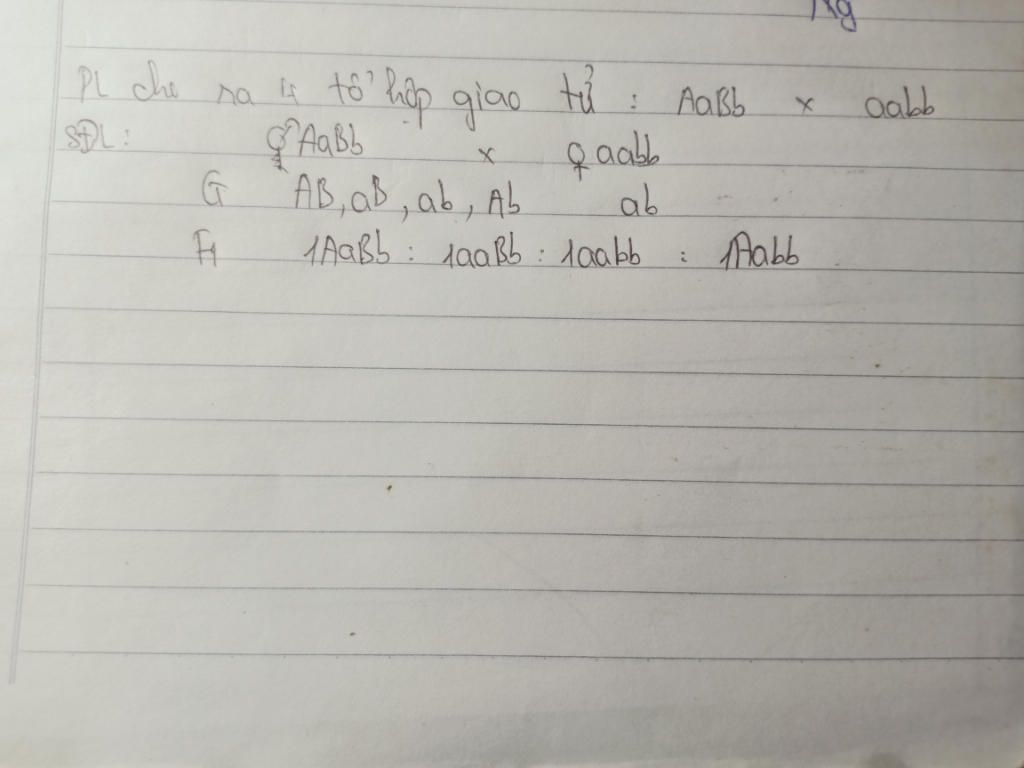 PL cho ra 4 tổ hợp giao tử : AaBb x aabb
SĐL: ♂ AaBb x ♀ aabb
G AB, aB, ab, Ab ab
F1 1AaBb : 1aaBb : 1aabb : 1Aabb